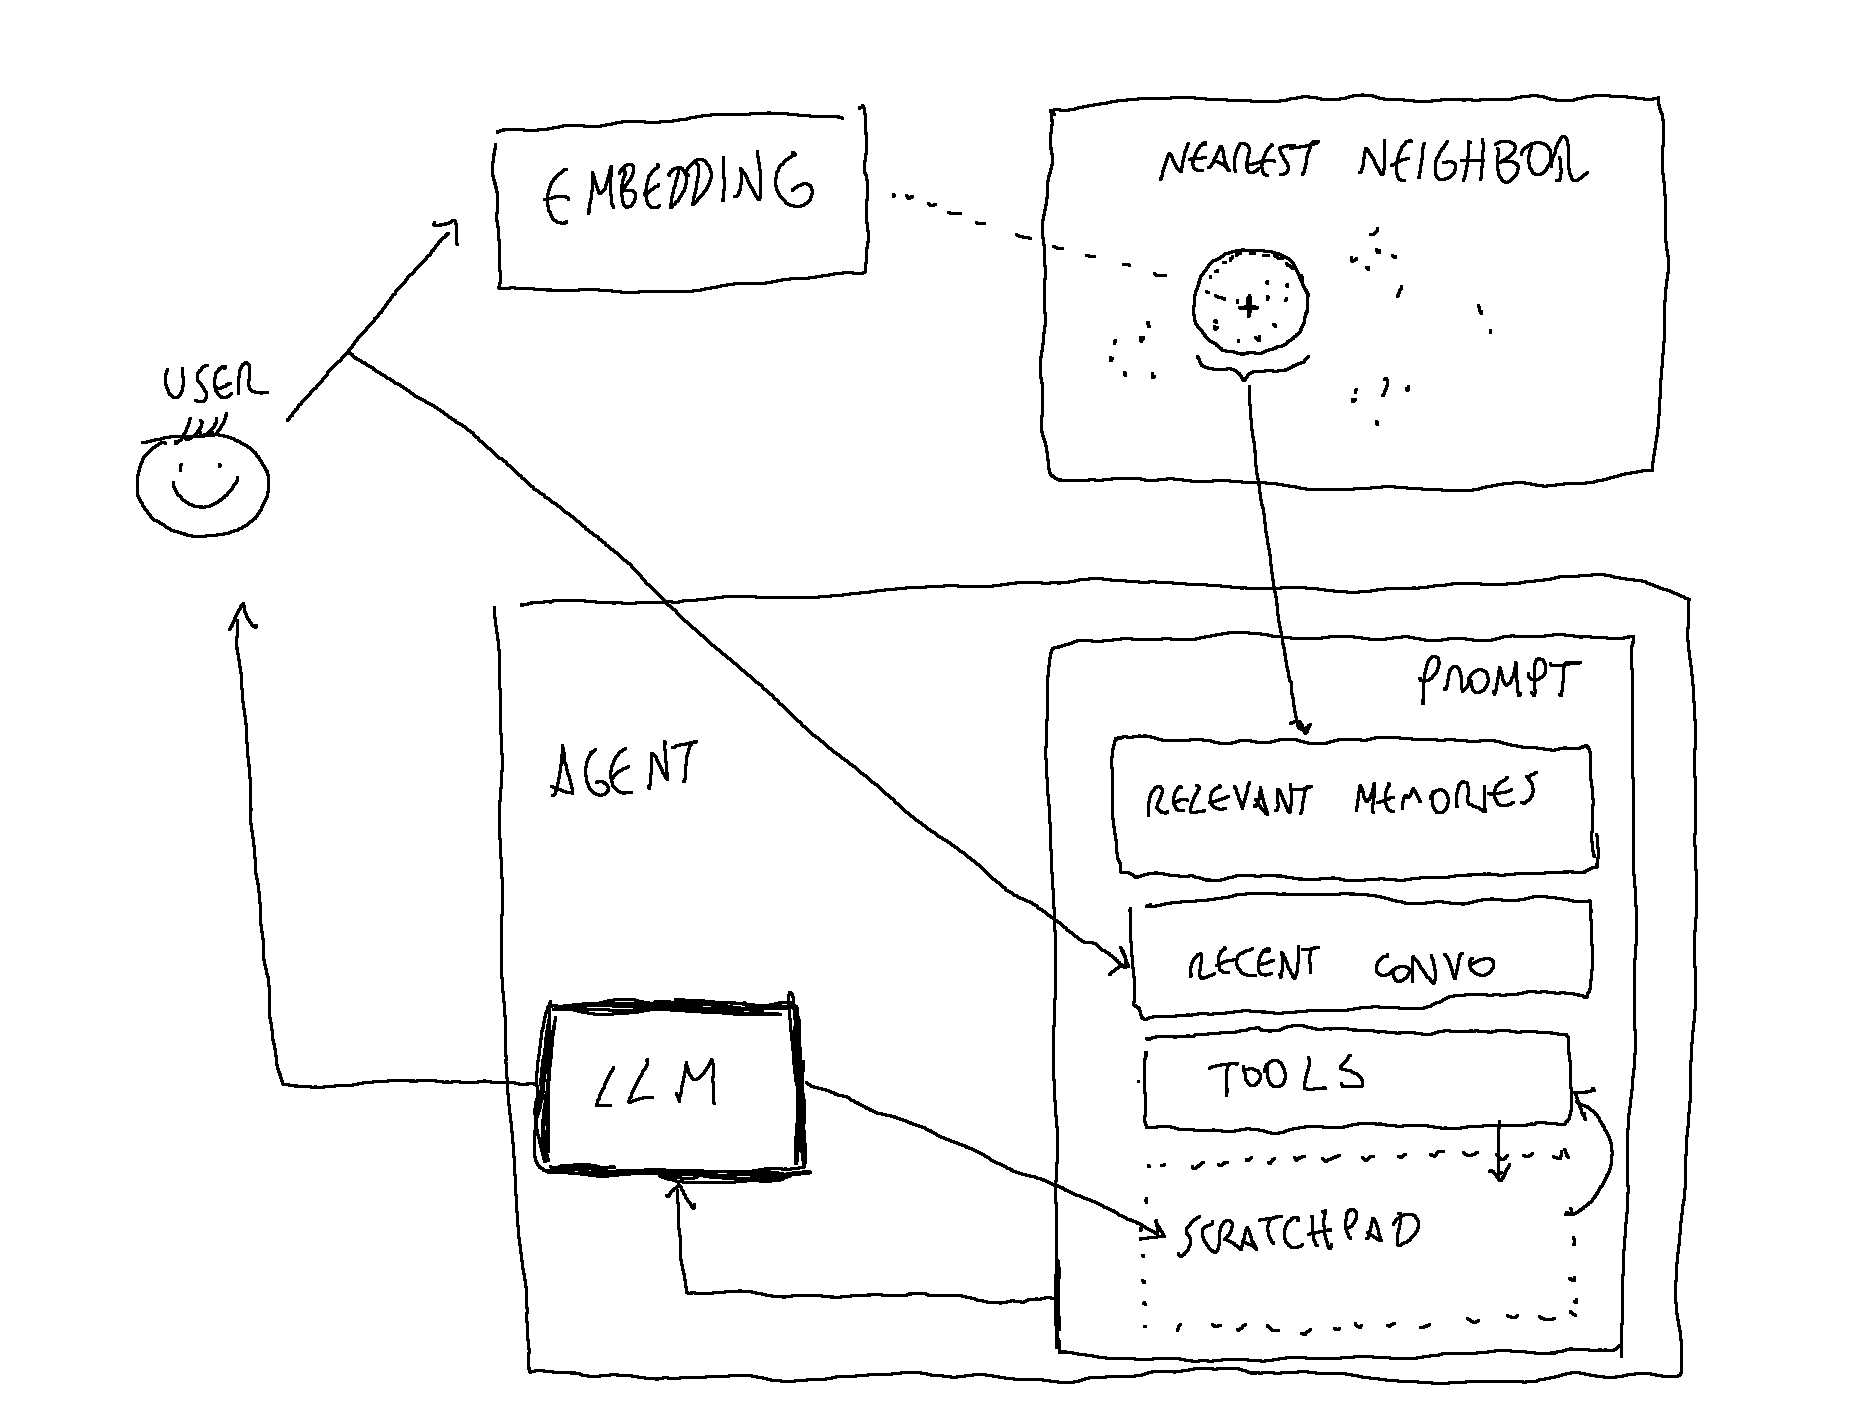 EMBEDDING
NEAREST NEIGHBOR
USER
PROMPT
AGENT
RELEVANT MEMORIES
RECENT CONVO
TOOLS
LLM
SCRATCHPAD